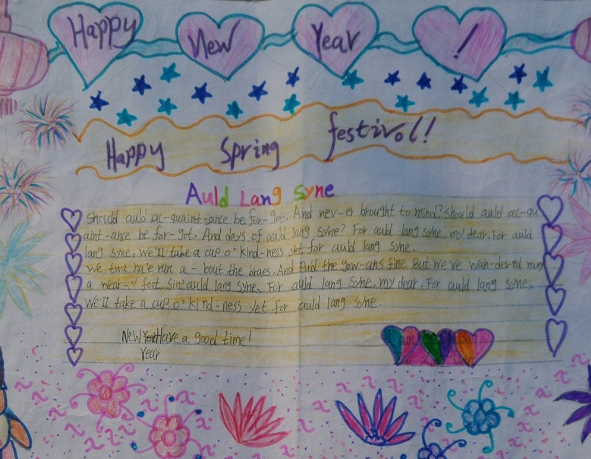 Happy New Year !
Happy Spring festivol!
Auld Lang Syne
Should auld ac-quaint-ance be for-got. And nev-er brought to mind? Should auld ac-qu
aint-ance be for-got. And days of auld lang syne? For auld lang syne, my dear. For auld
lang syne, we'll take a cup o' kind-ness yet for auld lang syne.
we twa ha'e run a-bout the braes. And the gow-ans fine But we've wan-dered many
a wear-y foot Sin' auld lang syne. For auld lang syne, my dear. For auld lang syne,
we'll take a cup o' kind-ness yet for auld lang syne.
New Have a good time!
Year